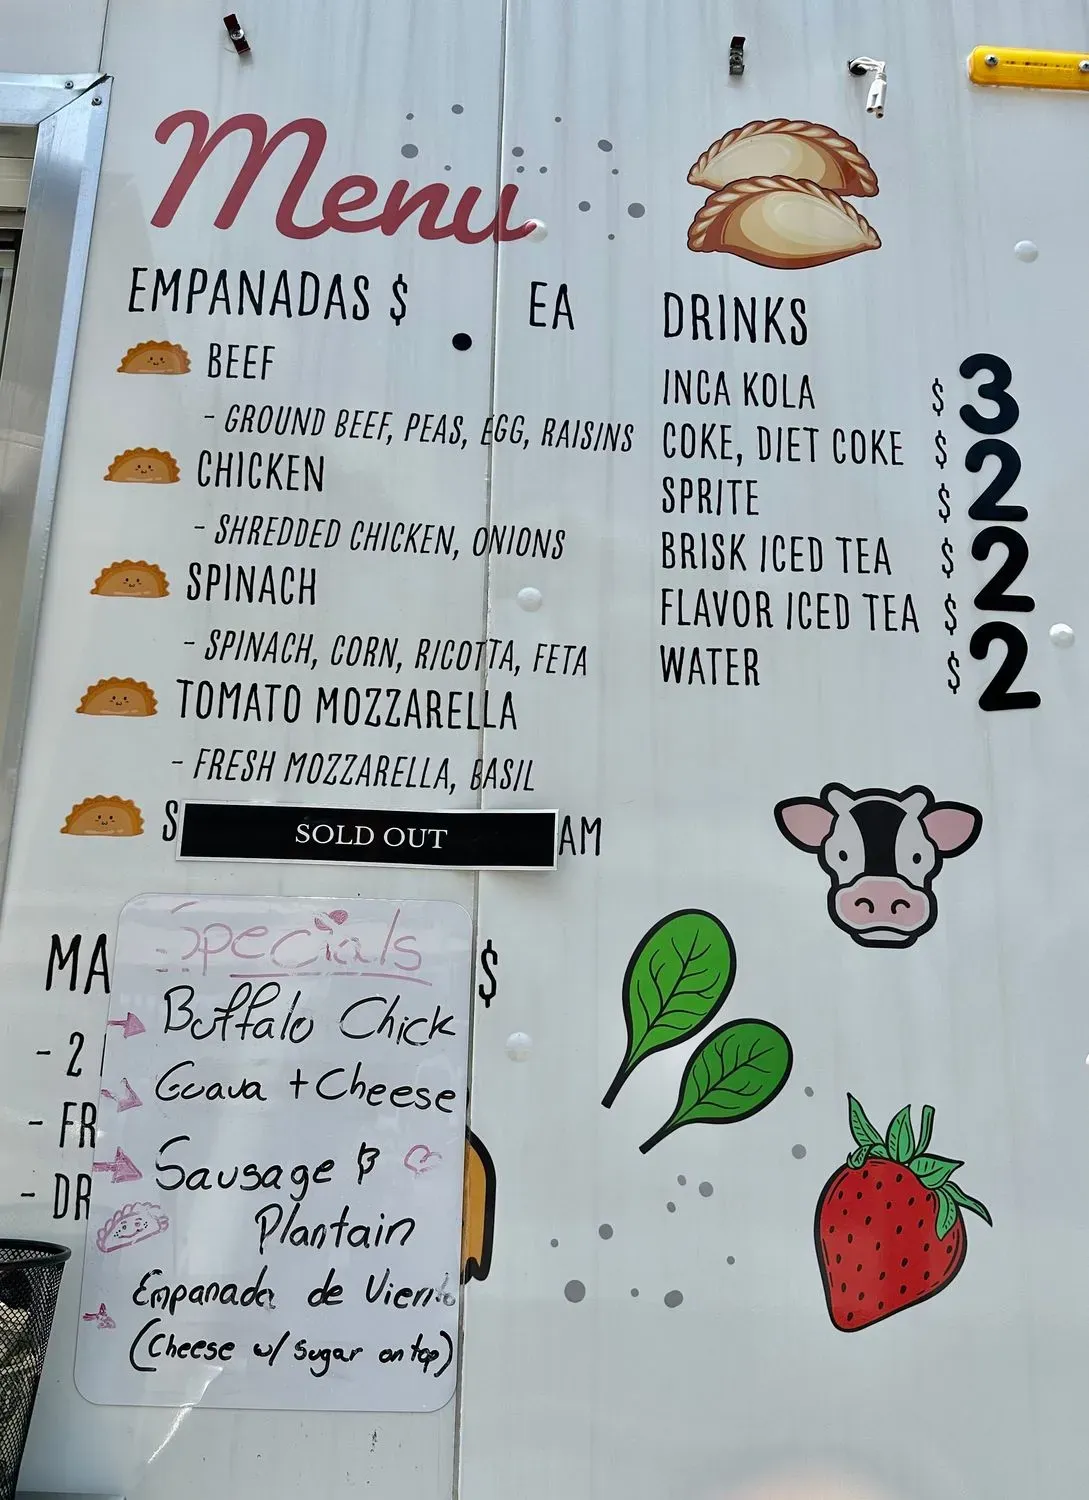 Menu
EMPANADAS $ . EA
BEEF
- GROUND BEEF, PEAS, EGG, RAISINS
CHICKEN
- SHREDDED CHICKEN, ONIONS
SPINACH
- SPINACH, CORN, RICOTTA, FETA
TOMATO MOZZARELLA
- FRESH MOZZARELLA, BASIL
S SOLD OUT AM
MA $
- 2
- FR
- DR
Specials
Buffalo Chick
Guava + Cheese
Sausage &
Plantain
Empanada de Viento
(Cheese w/ sugar on top)
DRINKS
INCA KOLA $ 3
COKE, DIET COKE $ 2
SPRITE $
BRISK ICED TEA $ 2
FLAVOR ICED TEA $
WATER $ 2